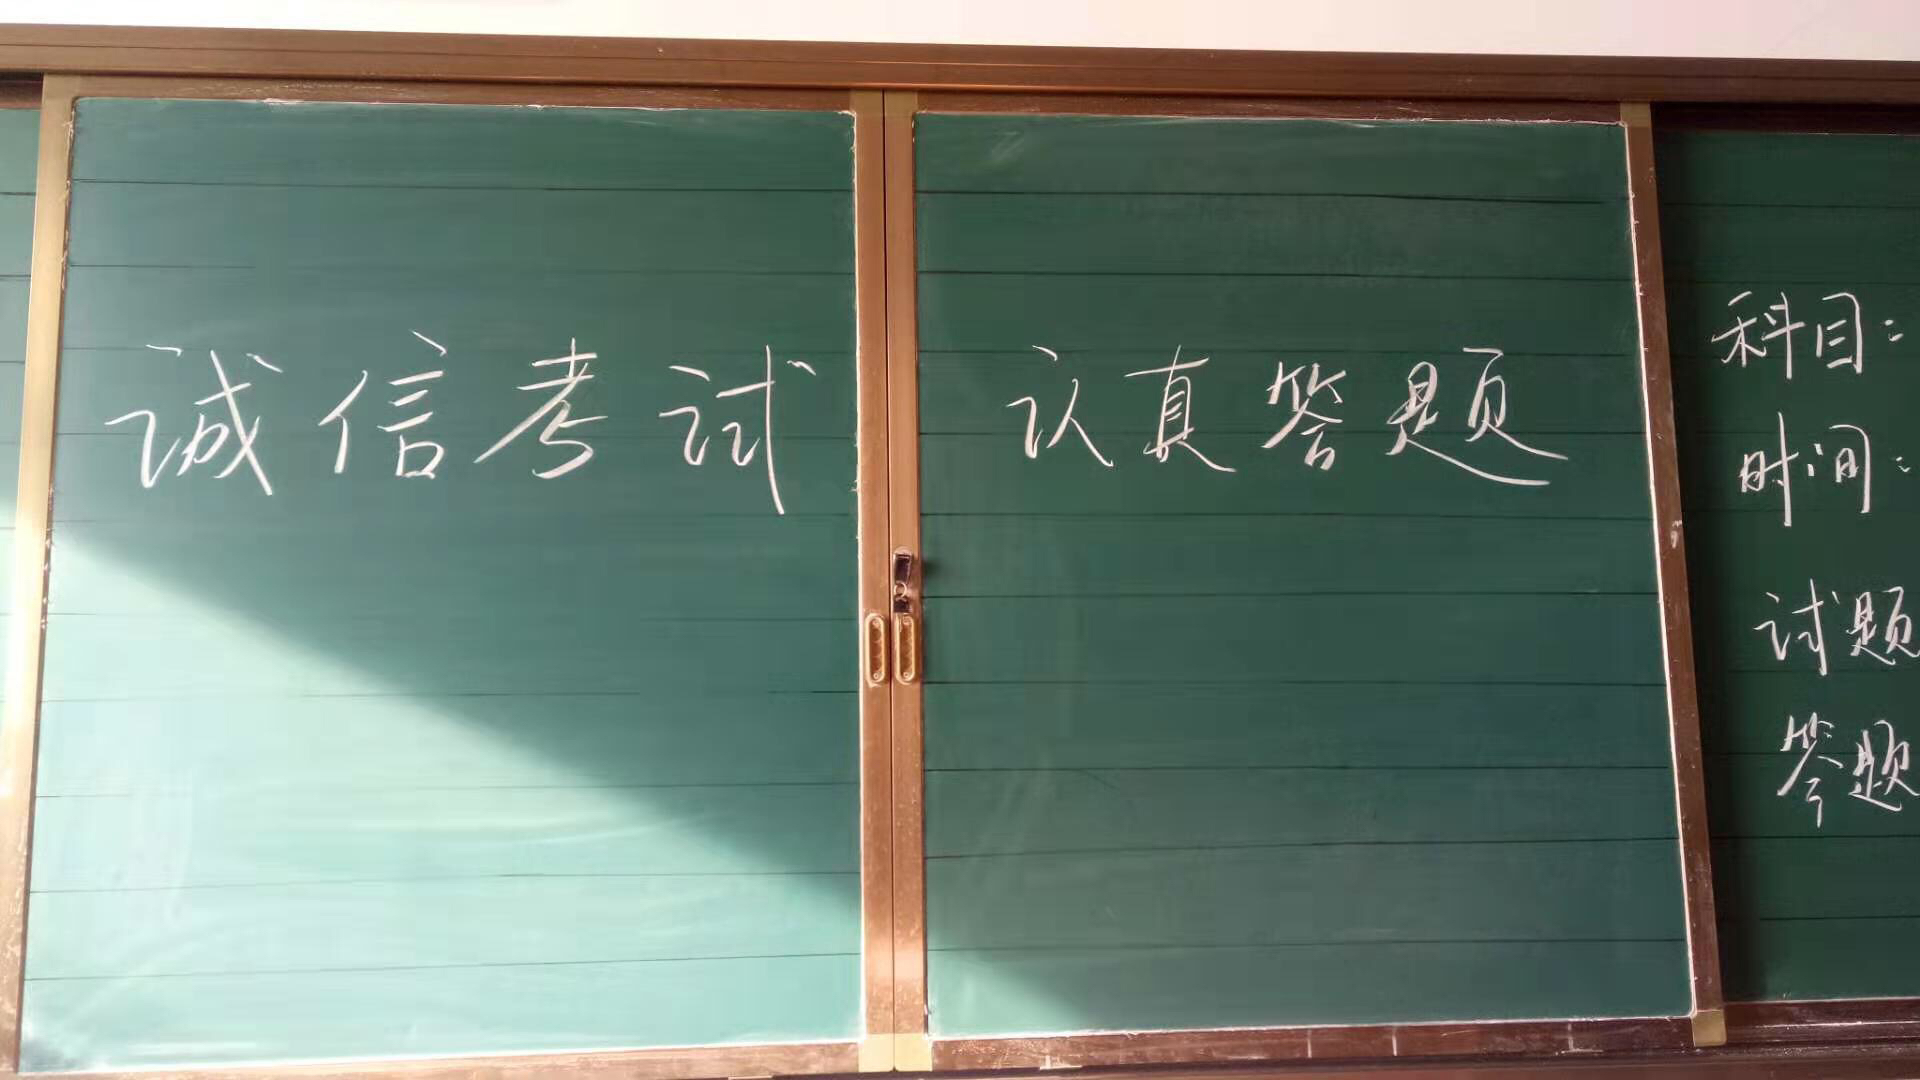 诚信考试 认真答题
科目:
时间:
试题
答题